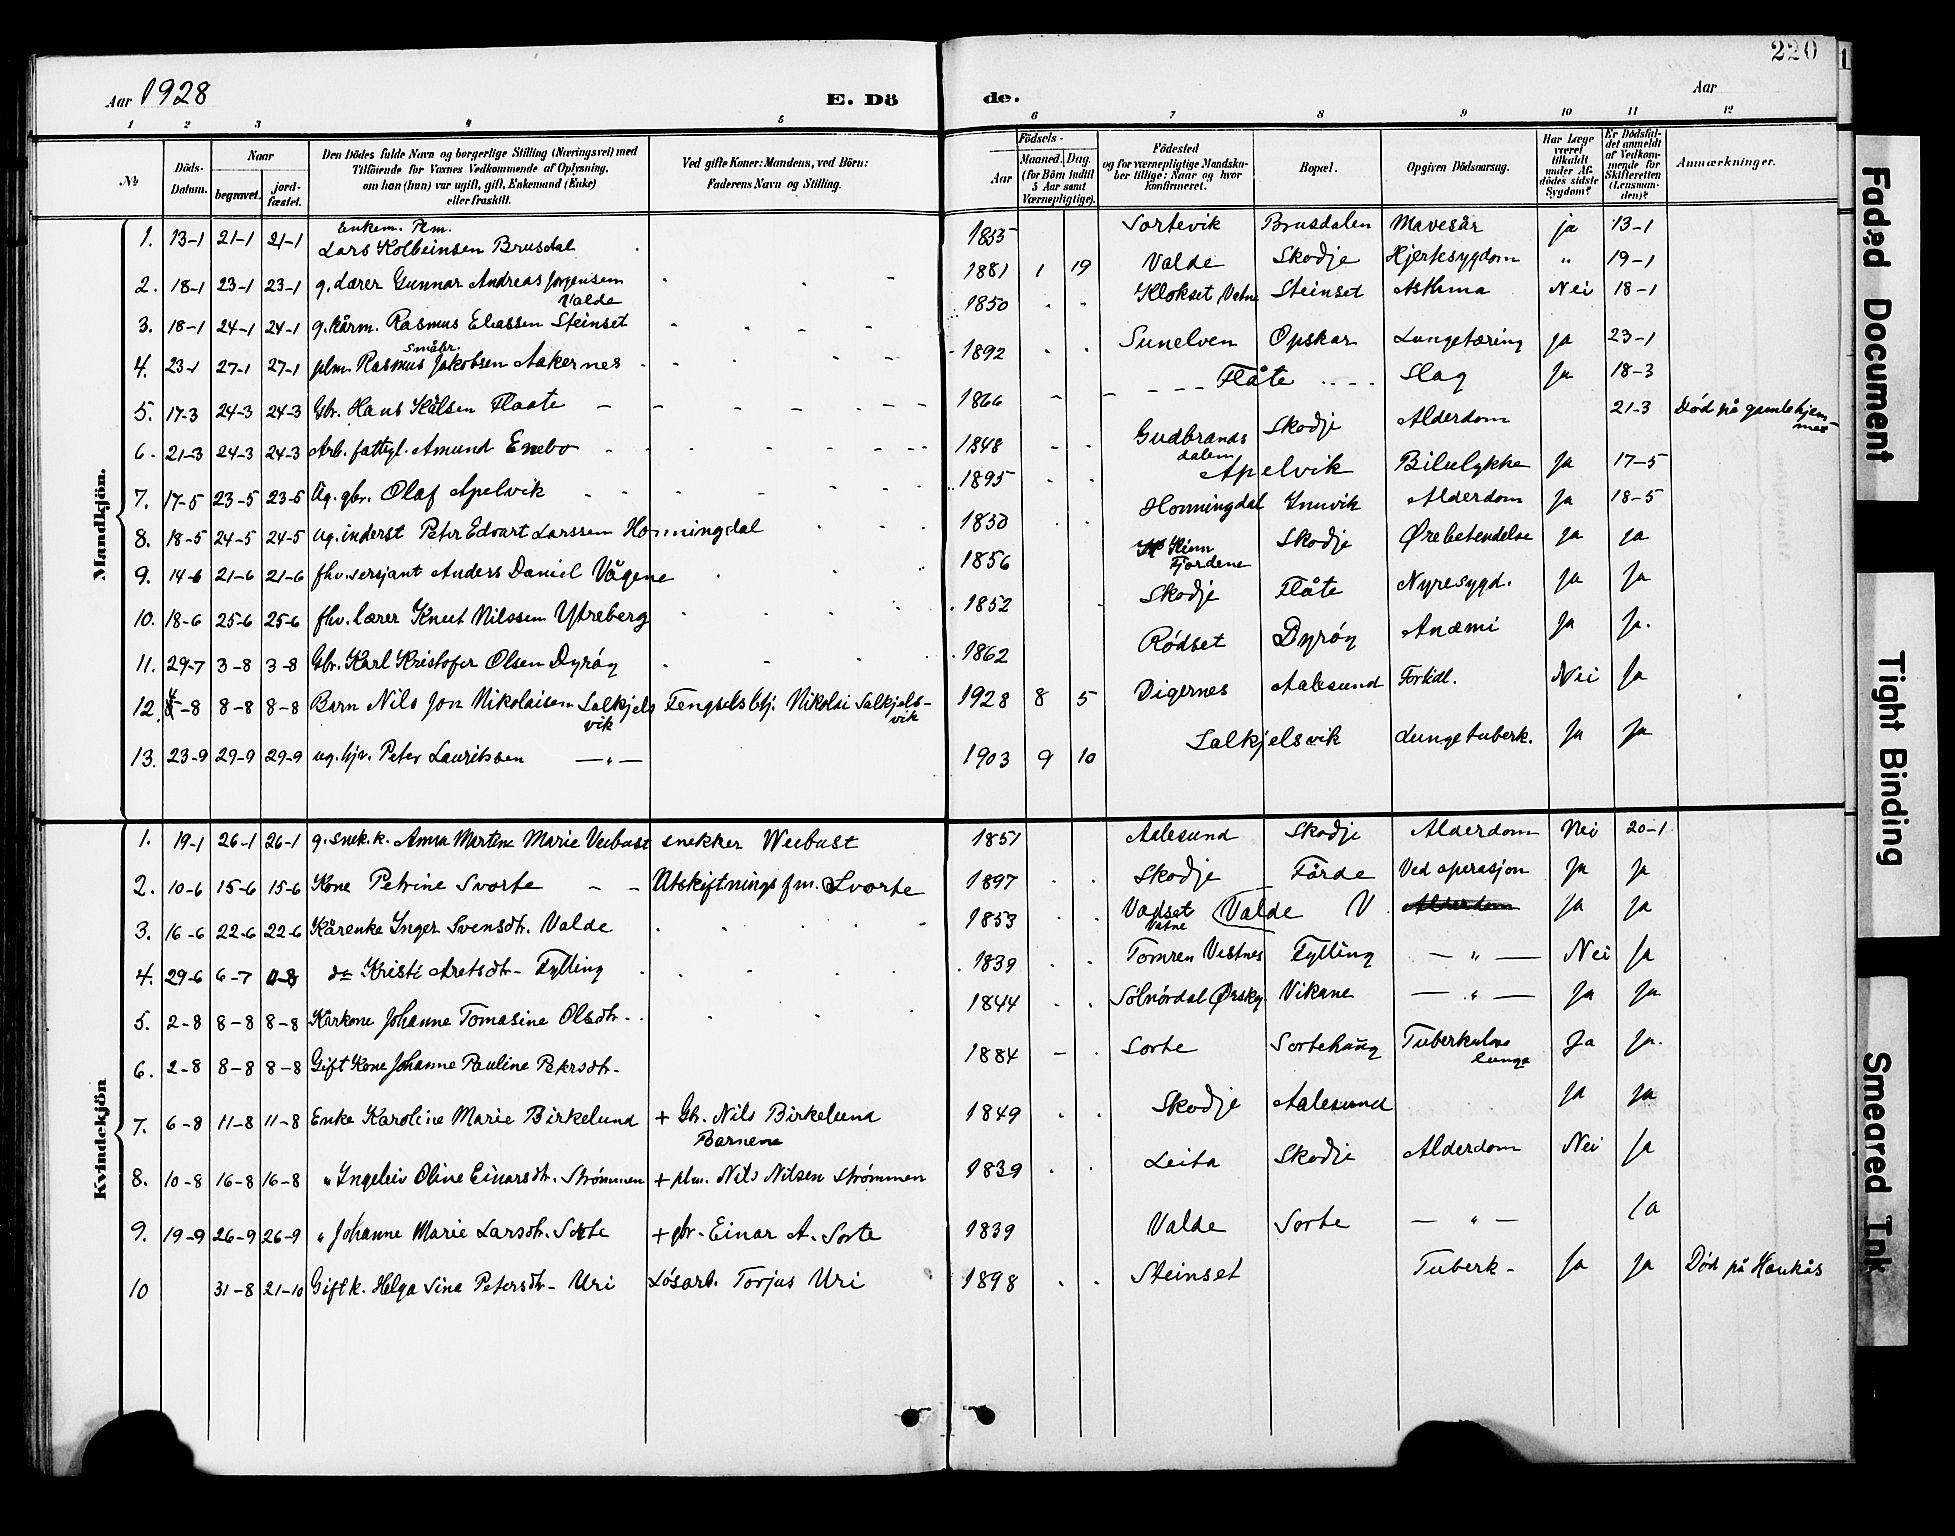 220
Aar 1928
E. Dö
de.
Aar
1 2 3 4 5 6 7 8 9 10 11 12
№
Döds-Datum.
Naar
begravet.
jord-fæstet.
Den Dödes fulde Navn og borgerlige Stilling (Næringsvei) med
Tilföiende for Voxnes Vedkommende af Oplysning,
om han (hun) var ugift, gift, Enkemand (Enke)
eller fraskilt.
Ved gifte Koner: Mandens, ved Börn:
Faderens Navn og Stilling.
Födsels-
Aar
Maaned. Dag.
(for Börn indtil
5 Aar samt
Værnepligtige).
Födested
og for værnepligtige Mandska-
ber tillige: Naar og hvor
konfirmeret.
Bopæl.
Opgiven Dödsaarsag.
Har Læge
været
tilkaldt
under Af-
dödes sidste
Sygdom?
Er Dödsfal-
det anmeldt
af Vedkom-
mende for
Skifteretten
(Lensman-
den)?
Anmærkninger.
Mandkjön.
Enkem. Plm.
1. 13-1 21-1 21-1 Lars Kolbeinsen Brusdal 1855 Sortevik Brusdalen Mavesår ja 13-1
2. 18-1 23-1 23-1 g. lærer Gunnar Andreas Jørgensen Valde 1881 1 19 Valde Skodje Hjertesygdom " 19-1
3. 18-1 24-1 24-1 g. kårm. Rasmus Eliassen Steinset 1850 Klokset Vatne Steinset Asthma Nei 18-1
småbr.
4. 23-1 27-1 27-1 plm. Rasmus Jakobsen Aakernes 1892 Sunelven Opskar Lungetæring ja 23-1
5. 17-3 24-3 24-3 Gbr. Hans Kålsen Flaate 1866 Flåte Slag Ja 18-3
6. 21-3 24-3 24-3 Arb. fattigl. Amund Enebo 1848 Gudbrandsdalen Skodje Alderdom 21-3 Død på gamlehjemmet
7. 17-5 23-5 23-5 Ug. gbr. Olaf Apelvik 1895 Apelvik Bilulykke Ja 17-5
8. 18-5 24-5 24-5 ug. inderst Peter Edvart Larssen Honningdal 1850 Honningdal Innvik Alderdom Ja 18-5
9. 14-6 21-6 21-6 fhv. sersjant Anders Daniel Vågene 1856 Kinn Fjordene Skodje Ørebetendelse Ja Ja
10. 18-6 25-6 25-6 fhv. lærer Knut Nilssen Ytreberg 1852 Skodje Flåte Nyresygd. Ja Ja
11. 29-7 3-8 3-8 Gbr. Karl Kristofer Olsen Dyrøy 1862 Rødset Dyrøy Anæmi Ja Ja.
12. -8 8-8 8-8 Barn Nils Jon Nikolaisen Salkjelsvik Fengselsbtj. Nikolai Salkjelsvik 1928 8 5 Digernes Aalesund Fortidl. Nei Ja
13. 23-9 29-9 29-9 ug. hjv. Peter Lauritssen —"— 1903 9 10 Salkjelsvik Lungetuberk. Ja Ja
Kvindekjön
1. 19-1 26-1 26-1 g. snek.k. Anna Martine Marie Veibust snekker Weibust 1851 Aalesund Skodje Alderdom Nei 20-1
2. 10-6 15-6 15-6 Kone Petrine Svorte Utskiftningsfm. Svorte 1897 Skodje Førde Ved operasjon Ja Ja
3. 16-6 22-6 22-6 Kårenke Inger Svensdtr. Valde 1853 Vadset Vatne Valde V Alderdom Ja Ja
4. 29-6 6-7 do Kristi Aretsdtr- Fylling 1839 Tomren Vestnes Fylling — " — Nei Ja
5. 2-8 8-8 8-8 Kårkone Johanne Tomasine Olsdtr- 1844 Sølnørdal Ørskg. Vikane — " — Ja Ja
6. 2-8 8-8 8-8 Gift Kone Johanne Pauline Petersdtr- 1884 Sorte Sortehaug Tuberkulose lunge Ja Ja.
7. 6-8 11-8 11-8 Enke Karoline Marie Birkelund + Gbr. Nils Birkelund 1849 Skodje Aalesund Ja Ja
Barnene
8. 10-8 16-8 16-8 " Ingeleiv Oline Einarsdtr. Strømmen + plm. Nils Nilsen Strømmen 1839 Leita Skodje Alderdom Nei Ja
9. 19-9 26-9 26-9 " Johanne Marie Larsdtr. Sorte + gbr. Einar A. Sorte 1839 Valde Sorte — " — Ja
10 31-8 21-10 Gift k. Helga Sina Petersdtr- Uri Løsarb. Torjus Uri 1898 Steinset Tuberk- Ja Ja Død på Haukås
Faded Document
Tight Binding
Smeared Ink